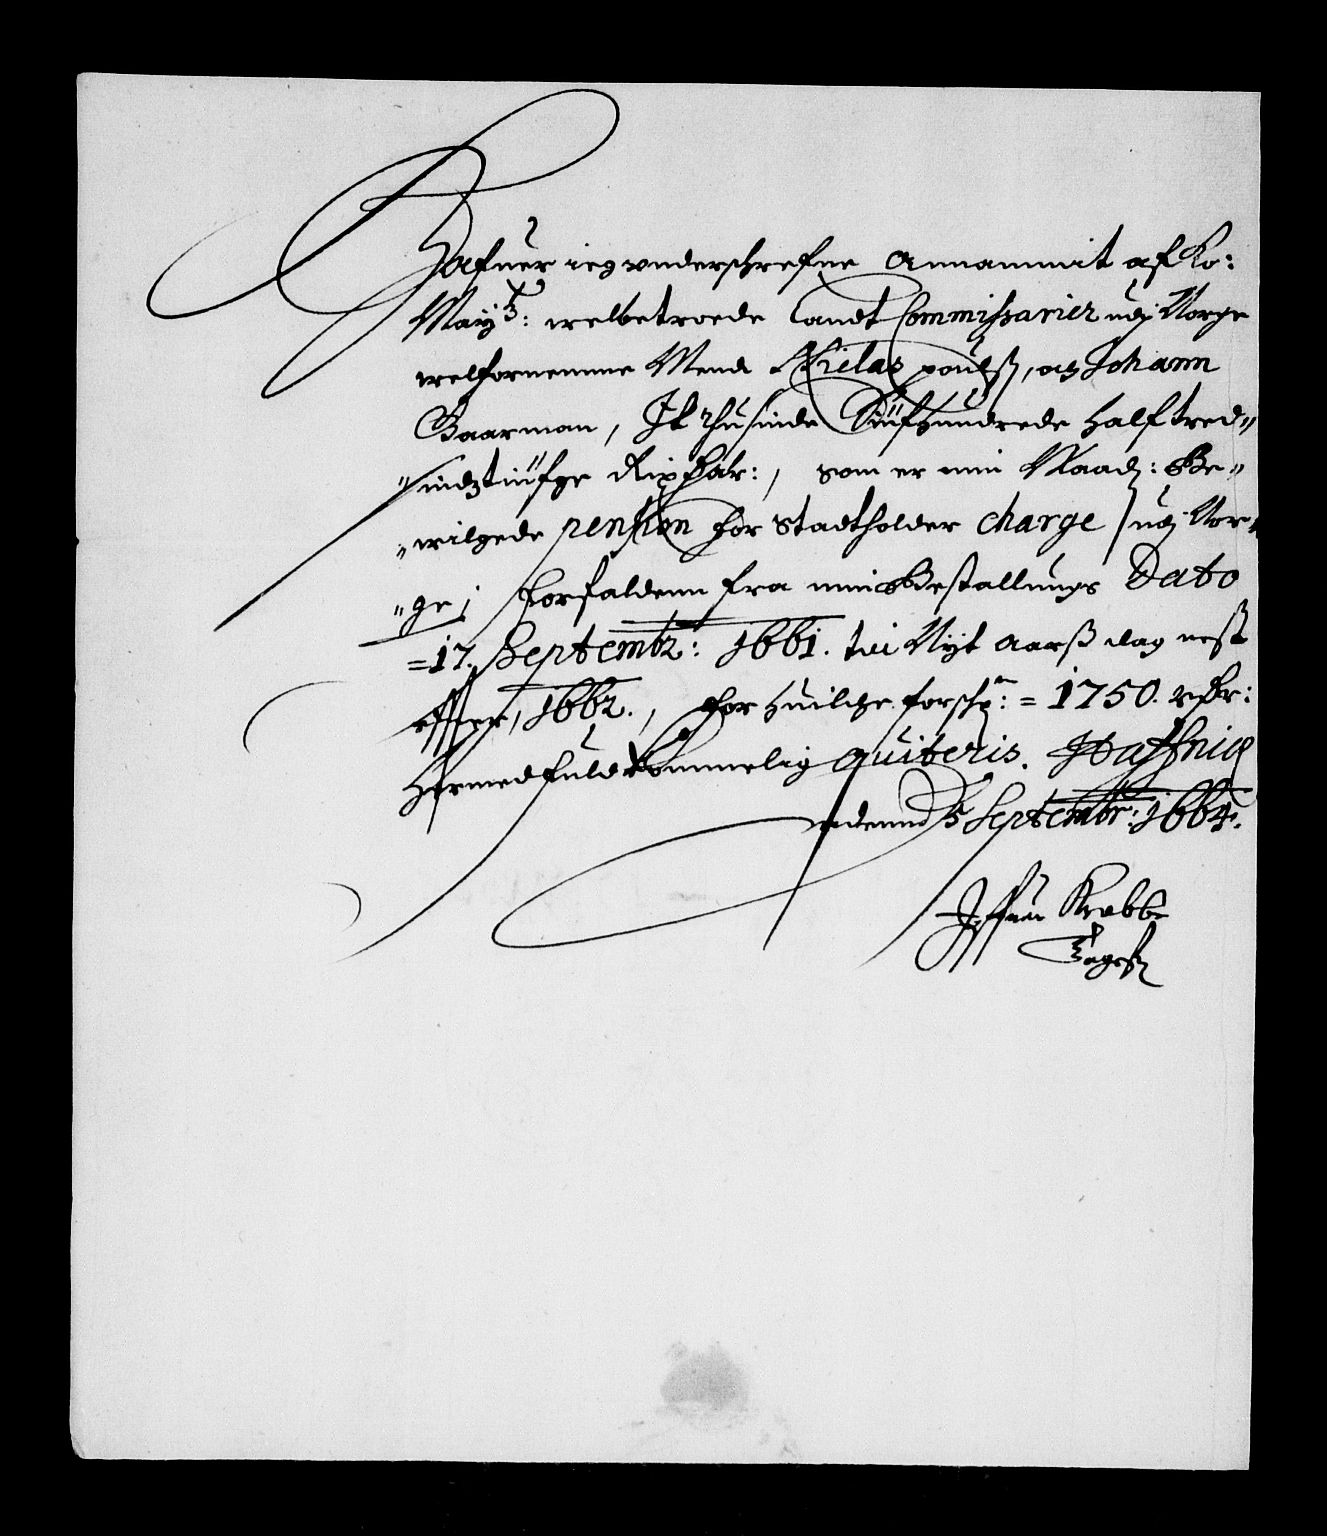 Hafuer ieg underschrefne Annammit af Ko:
Maÿtz: welbetroede Landt Commissarier udj Norge
welfornemme Mend Nielas poulß, og Johann
Gaarman, Jt thusinde Siufhundrede Halftred„
„sindztiufge Rixdalr:, som er min Naadz: Be„
„wilgede pension for Stadtholder charge udj Nor„
„ge; forfaldenn fra min Bestallungs Dato
=17. Septembr: 1661. till Nÿt Aarß dag nest
effter, 1662., for huilche forschr: = 1750. rdr:
Hermed fuldkommelig quiteris. Haffniæ
denn 5 Septembr: 1664.
Iffuer Krabbe
Tagesß